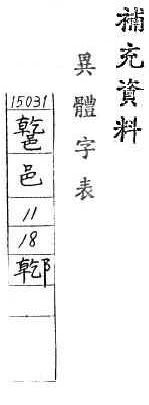 補充資料
異體字表
15031
邑
11
18